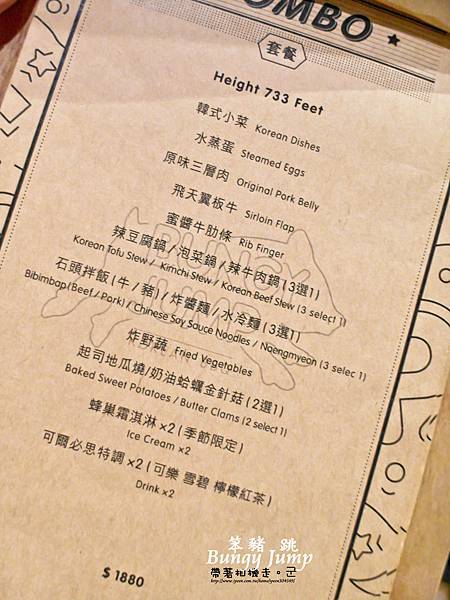 COMBO
套餐
Height 733 Feet
韓式小菜 Korean Dishes
水蒸蛋 Steamed Eggs
原味三層肉 Original Pork Belly
飛天翼板牛 Sirloin Flap
蜜醬牛肋條 Rib Finger
辣豆腐鍋/泡菜鍋/辣牛肉鍋(3選1)
Korean Tofu Stew / Kimchi Stew / Korean Beef Stew (3 select 1)
石頭拌飯(牛/豬)/炸醬麵/水冷麵(3選1)
Bibimbap(Beef / Pork) / Chinese Soy Sauce Noodles / Naengmyeon (3 selec 1)
炸野蔬 Fried Vegetables
起司地瓜燒/奶油蛤蠣金針菇(2選1)
Baked Sweet Potatoes / Butter Clams (2 select 1)
蜂巢霜淇淋 ×2 (季節限定)
Ice Cream ×2
可爾必思特調 ×2 (可樂 雪碧 檸檬紅茶)
Drink ×2
$ 1880
BUNGY
JUMP
笨豬 跳
Bungy Jump
帶著相機走。